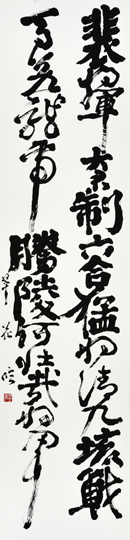 裴將軍大君制六合猛將清九垓戰
馬若龍虎騰陵何壯哉將軍